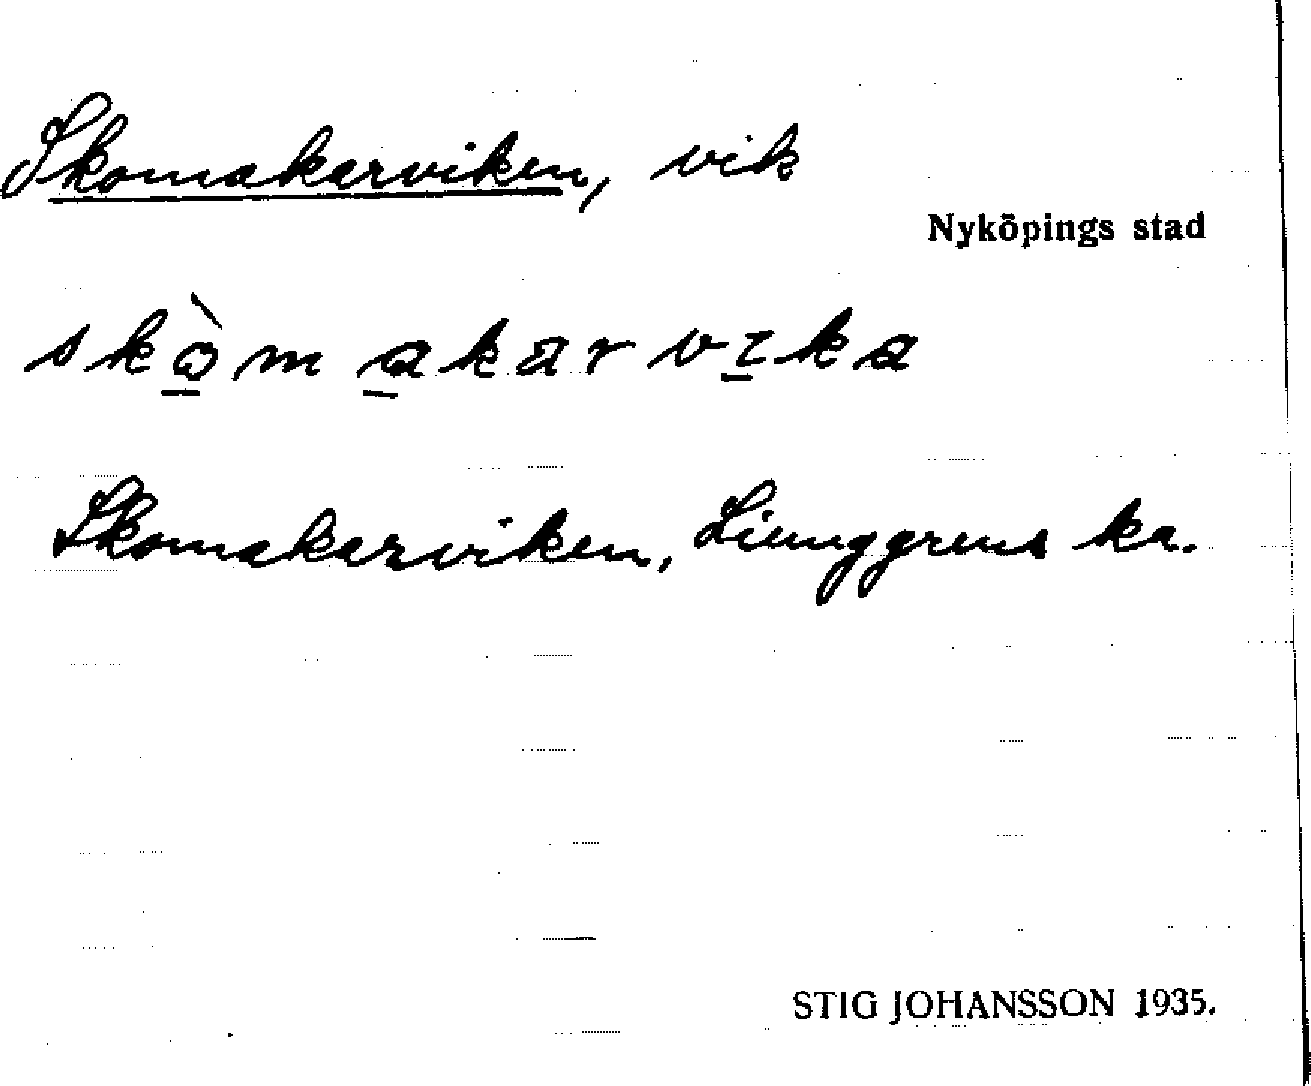 Skomakarviken, vik
Nyköpings stad
skòmakarvika
Skomakarviken, Liunggrens ka.
STIG JOHANSSON 1935.